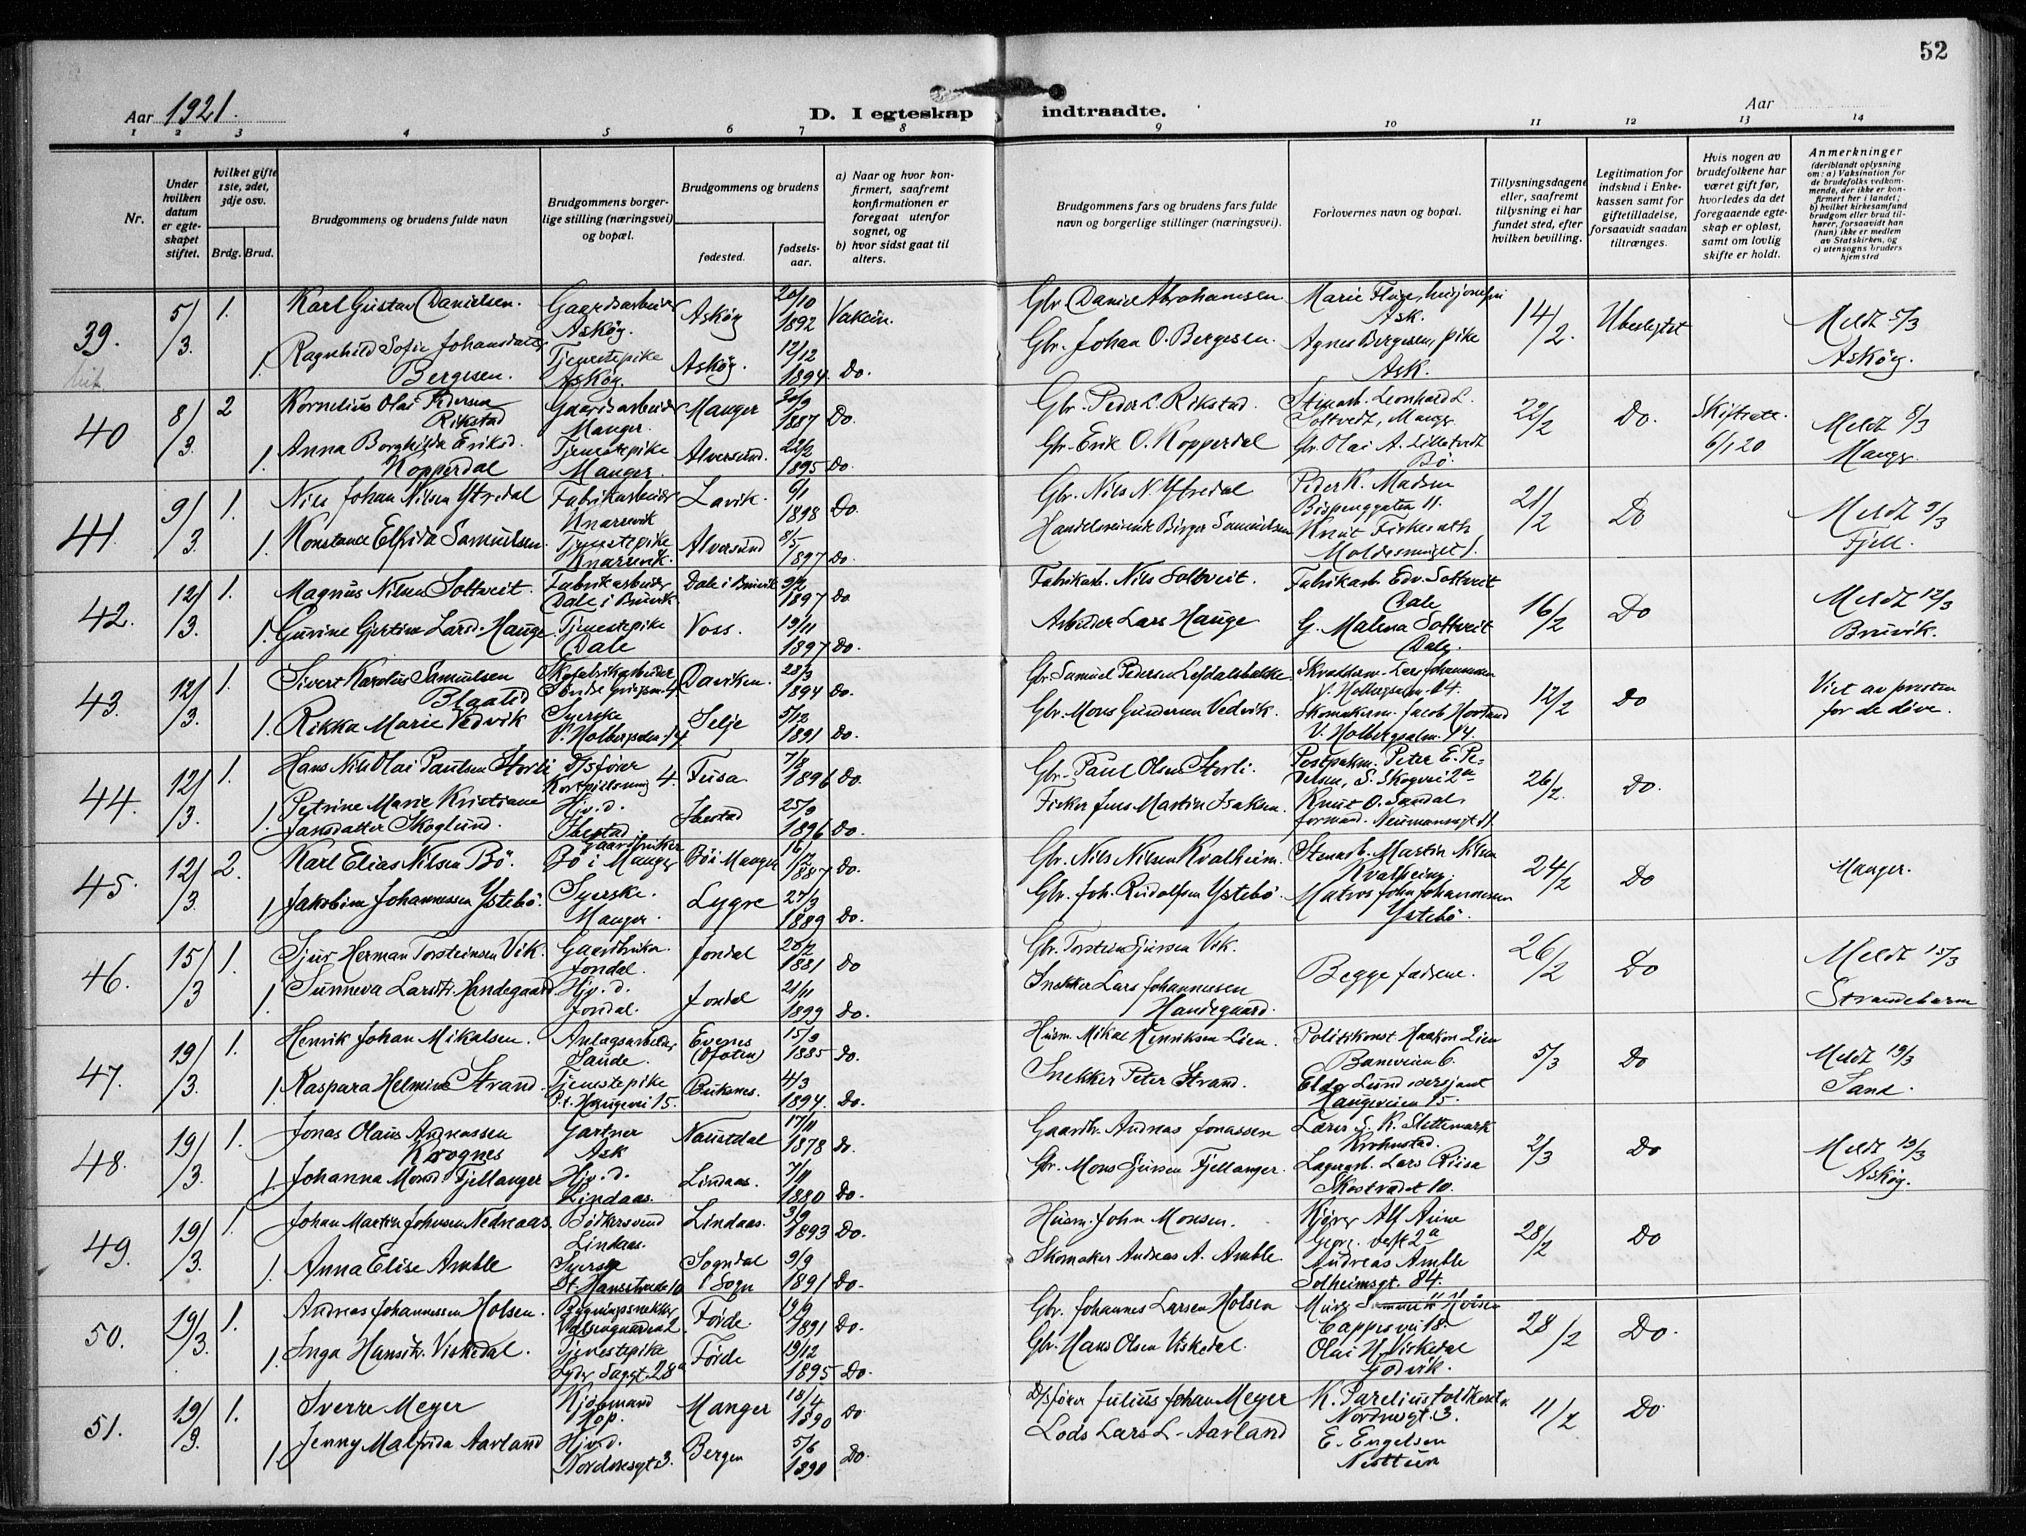 52
Aar 1921.
D. I egteskap indtraadte.
Aar
1 2 3 4 5 6 7 8 9 10 11 12 13 14
Nr.
Under hvilken datum er egteskapet stiftet.
hvilket gifte 1ste, 2det, 3dje osv.
Brdg. Brud.
Brudgommens og brudens fulde navn
Brudgommens borgerlige stilling (næringsvei) og bopæl.
Brudgommens og brudens
fødested.
fødselsaar.
a) Naar og hvor konfirmert, saafremt konfirmationen er foregaat utenfor sognet, og
b) hvor sidst gaat til alters.
Brudgommens fars og brudens fars fulde navn og borgerlige stillinger (næringsvei).
Forlovernes navn og bopæl.
Tillysningsdagene eller, saafremt tillysning ei har fundet sted, efter hvilken bevilling.
Legitimation for indskud i Enkekassen samt for giftetilladelse, forsaavidt saadan tiltrænges.
Hvis nogen av brudefolkene har været gift før, hvorledes da det foregaaende egteskap er opløst, samt om lovlig skifte er holdt.
Anmerkninger (deriblandt oplysning om: a) Vaksination for de brudefolks vedkommende, der ikke er konfirmert her i landet; b) hvilket kirkesamfund brudgom eller brud tilhører, forsaavidt han (hun) ikke er medlem av Statskirken, og c) utensogns bruders hjemsted
39. 5/3 1. Karl Gustav Danielsen. Gaardsarbeider Askøy. Askøy 20/10 1892 Vakcin. Gbr. Daniel Abrahamsen Ask. 14/2. Ubeslegtet Meldt 5/3 Askøy.
1. Ragnhild Sofie Johansdatter Bergesen. Tjenestepike Askøy. Askøy. 12/12 1894. Do. Gbr. Johan O. Bergesen. Agnes Bergesen, pike Ask.
40 8/3 2 Kornelius Olai Pedersen Rikstad Gaardsarbeider Manger. Manger 20/9 1887 Do. Gbr. Peder L. Rikstad. Leonhard L. Soltvedt, Manger 22/2 Do. Skifteatt. 6/1 20 Meldt 8/3 Manger.
1. Anna Borghilda Eriksd. Kopperdal Tjenestepike Manger. Alversund. 22/2 1895 Do. Gbr. Erik O. Kopperdal Gbr. Olai A. Bø.
41. 9/3. 1. Nils Johan Nilsen Ytredal Fabrikarbeider Knarrevik Lavik. 9/1 1898 Do. Gbr. Nils N. Ytredal Peder K. Madsen 11. 21/2 Do Meldt 9/3 Fjell.
1. Konstance Elfrida Samuelsen. Tjenestepike Knarrevik. Alversund 8/5 1897 Do. Handelsreisende Birger Samuelsen Knut
42. 12/3. 1. Magnus Nilsen Soltveit. Fabrikarbeider Dale i Bruvik Dale i Bruvik 1897 Do Fabrikarb. Nils Soltveit. Fabrikarb. Edv. Soltveit Dale 16/2 Do Meldt 12/3 Bruvik.
1. Gurine Gjertine Larsd. Hauge. Tjenestepike Dale Voss. 19/11 1897 Do. Arbeider Lars Hauge G. Malena Soltveit Dale.
43. 12/3. 1. Sivert Karolus Samuelsen Blaalid Skofabrikarbeider Daviken. 28/3 1894 Do. Gbr. Samuel Pedersen V. Holbergsalm. 14. 12/2 Do Viet av presten for de døve.
1. Rikka Marie Vedvik Syerske V. Holbergsalm. 14 Selje 5/12 1891 Do. Gbr. Mons Gundersen Vedvik. Skomakerm. Jacob Hovland V. Holbergsalm. 14.
44. 12/3. 1. Hans Nils Olai Paulsen Storli D/s fører 4. Fusa 7/8 1896 Do. Gbr. Paul Olsen Storli. Postpakm. Peter E. Pedersen, S. Skogvei 2a 26/2. Do.
1. Petrine Marie Kristiane Jansdatter Skoglund. Hjv. d. Ibestad Ibestad 25/9 1896 Do. Fisker Jens Martin Isaksen. Knut O. Sandal, formand. Neumannsgt. 11
45. 12/3. 2. Karl Elias Nilsen Bø. Gaardbruker Bø i Manger Bø i Manger 1887 Do. Gbr. Nils Nilsen Kvalheim. Martin Nilsen Kvalheim. 24/2 Do Manger.
1. Jakobine Johannessen Ystebø. Syerske. Manger. Lygre 27/3 1889 Do. Gbr. Joh. Rudolfsen Ystebø. Matros John Johannessen Ystebø.
46. 15/3 1. Sjur Herman Torsteinsen Vik. Gaardbruker. Jondal. Jondal 1881 Do Gbr. Torstein Sjursen Vik. Begge fædrene. 26/2 Do Meldt 15/3 Strandebarm
1. Sunneva Larsdtr. Handegaard Hjv. d. Jondal. Jondal 21/11 1899 Do. Snekker Lars Johannessen Handegaard.
47. 19/3 1. Henrik Johan Mikalsen. Anlagsarbeider Saude. Evenes (Ofoten) 15/9 1885 Do. Husm. Mikal Henriksen Lien. Politikonst. Haakon Lien Baneveien 6. 5/3 Do Meldt 19/3 Sand.
1. Kaspara Helmine Strand. Tjenestepike P.t. Haugevei 15. Buksnes. 4/3 1894. Do. Snekker Peter Strand. Lund sersjant Haugeveien 15.
48. 19/3. 1. Jonas Olaus Andreassen Krognes Gartner Ask Naustdal 17/11 1878 Do. Gaardbr. Andreas Jonassen Lærer S. K. Slettemark Krohnstad. 2/3 Do Meldt 19/3 Askøy.
1. Johanna Monsd. Fjellanger Hjv. d. Lindaas. Lindaas. 7/11 1880 Do. Gbr. Mons Sjursen Fjellanger. Lagerarb. Lars Riisa Skostrædet 10.
49. 19/3. 1. Johan Martin Johnsen Nedreaas. Bødkersvend Lindaas. Lindaas. 3/9 1893 Do. Husm. John Monsen. Alf 2a 28/2 Do
1. Anna Elise Amble Syerske St. Hansstræde 10 Sogndal i Sogn 9/9 1891 Do. Skomaker Andreas A. Amble Andreas Amble Solheimsgt. 84.
50. 19/3. 1. Andreas Johannessen Holsen. Bygningssnekker 2. Førde. 19/9 1891 Do. Gbr. Johannes Larsen Holsen Murer Cappesvei 18. 28/2 Do.
1. Inga Hansdtr. Viskedal. Tjenestepike 28a Førde 19/12 1895 Do. Gbr. Hans Olsen Viskedal. Olai H. Viskedal Godvik.
51. 19/3. 1. Sverre Meyer Kjøbmand Kop. Manger 18/4 1890 Do. D/s fører Julius Johan Meyer K. Parelius Nordnesgt. 3. 11/2 Do
1. Jenny Malfrida Aarland Hjv. d. Nordnesgt. 3. Bergen 5/6 1898 Do. Lods Lars L. Aarland E. Engelsen Nesttun